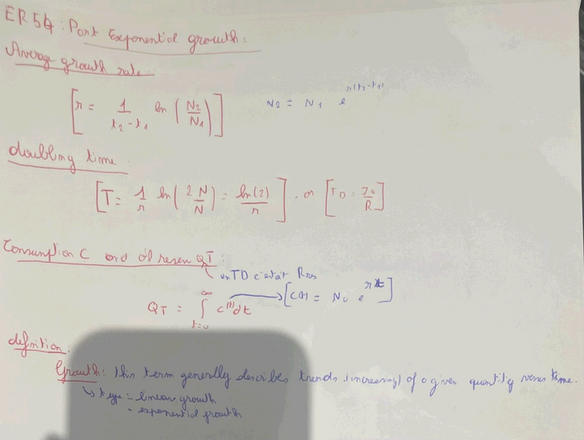 ER54: Part Exponential growth:
Average growth rate
[r = 1/(t2-t1) ln (N2/N1)] N2 = N1 e^r(t2-t1)
doubling time
[T = 1/r ln(2N/N) = ln(2)/r] or [TD = 70/R]
Consumption C and oil reserv QT:
en TD c'etait
QT = ∫ t=0 ∞ C(t)dt → [C(t) = N0 e^rt]
definition:
Growth: this term generally describes trends (increasing) of a given quantity versus time.
↳ type - linear growth
- exponential growth